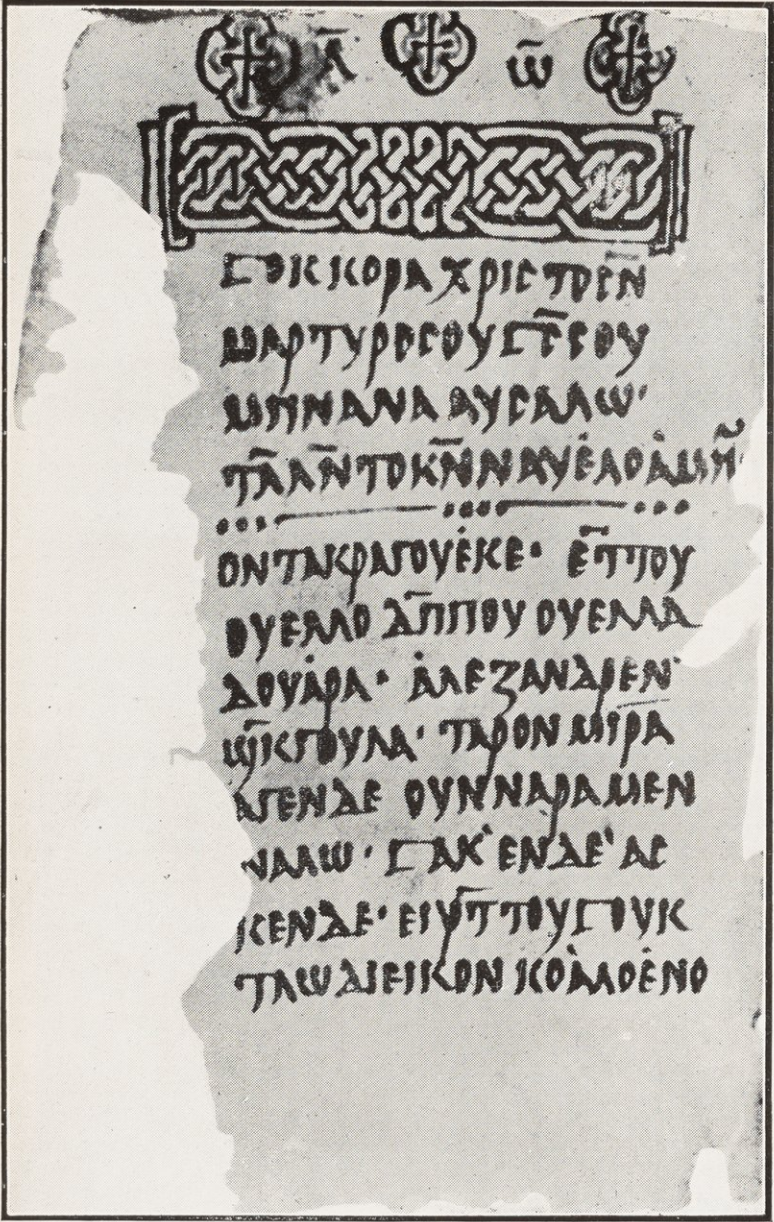 ⲁ̄ ⲱ̄
ⳟⲟⲕⲕⲟⲣⲁ ⲭⲣⲓⲥⲧⲟⲥⲛ̄
ⲙⲁⲣⲧⲩⲣⲟⲥⲟⲩ ⳟⲥ̄ⲥⲟⲩ
ⲙⲏⲛⲁⲛⲁ ⲁⲩⲥⲁⲗⲱ·
ⲧⲁ̄ⲗⲛ̄ ⲧⲟⲕⲛ̄ⲛⲁⲩⲉ̇ⲗⲟ ⲁ̇ⲙⲏⲛ̄
ⲟⲛ ⲧⲁⲕⲣⲁⲅⲟⲩⲉ̇ⲕⲉ· ⲉ̄ⲧⲧⲟⲩ
ⲟⲩⲉⲗⲗⲟ ⲇ̄ⲡⲡⲟⲩ ⲟⲩⲉⲗⲗⲁ
ⲇⲟⲩⲁ̇ⲣⲁ· ⲁ̇ⲗⲉⲝⲁⲛⲇⲣⲉⲛ
ϣ̄ⲓⲕⲅⲟⲩⲗⲁ· ⲧⲁⲣⲟⲛ ⲙⲓⲣⲁ
ⲁⲅⲉⲛⲇⲉ ⲟⲩⲛⲛⲁⲣⲁⲙⲉⲛ
ⲛⲁⲗⲱ· ⳟⲁⲕ' ⲉⲛⲇⲉ' ⲁⲥ
ⲕⲉⲛⲇⲉ· ⲉⲓⲩ̄ⲧⲧⲟⲩⳟⲟⲩⲕ
ⲧⲗⲱ ⲇⲓⲉⲓⲕⲟⲛ ⲕⲟⲗ̇ⲗⲟⲉ̇ⲛⲟ